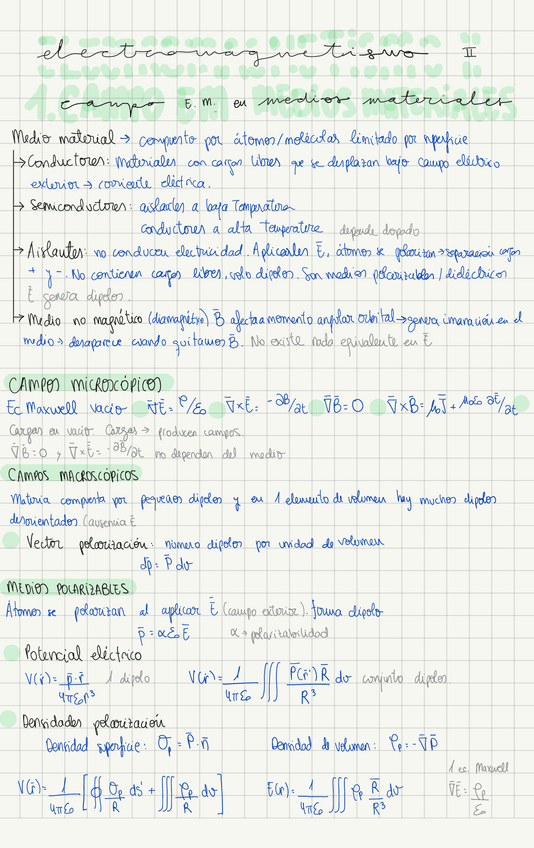 electromagnetismo II
1. CAMPO E.M. EN MEDIOS MATERIALES
campo E.M. en medios materiales
Medio material → compuesto por átomos/moléculas limitado por superficie
→ Conductores: Materiales con cargas libres que se desplazan bajo campo eléctrico
exterior → corriente eléctrica.
→ Semiconductores: aislantes a baja Temperatura
conductores a alta temperatura depende dopado
→ Aislantes: no conducen electricidad. Aplicarles E̅, átomos se polarizan → separación cargas
+ y -. No contienen cargas libres, solo dipolos. Son medios polarizables/dieléctricos
E̅ genera dipolos.
→ Medio no magnético (diamagnético) B̅ afecta a momento angular orbital → genera imanación en el
medio → desaparece cuando quitamos B̅. No existe nada equivalente en E̅
CAMPOS MICROSCÓPICOS
Ec Maxwell vacío ∇̅E̅ = ρ/ε₀ ∇̅×E̅ = -∂B̅/∂t ∇̅B̅ = 0 ∇̅×B̅ = μ₀J̅ + μ₀ε₀ ∂E̅/∂t
Cargas en vacío Cargas → producen campos.
∇̅B̅ = 0 y ∇̅×E̅ = -∂B̅/∂t no dependen del medio
CAMPOS MACROSCÓPICOS
Materia compuesta por pequeños dipolos y en 1 elemento de volumen hay muchos dipolos
desorientados (ausencia E̅
Vector polarización: número dipolos por unidad de volumen
dp̅ = P̅ dv
MEDIOS POLARIZABLES
Átomos se polarizan al aplicar E̅ (campo exterior). forma dipolo
p̅ = αε₀E̅ α → polarizabilidad
Potencial eléctrico
V(r̅) = p̅·r̅ / 4πε₀r³ 1 dipolo V(r̅) = 1/4πε₀ ∭ P̅(r̅')R̅ / R³ dv conjunto dipolos.
Densidades polarización
Densidad superficie: σₚ = P̅·n̅ Densidad de volumen: ρₚ = -∇̅P̅
V(r̅) = 1/4πε₀ [∮ σₚ/R ds' + ∭ ρₚ/R dv] E(r̅) = 1/4πε₀ ∭ ρₚ R̅/R³ dv
1 ec. Maxwell
∇̅E̅ = ρₚ/ε₀